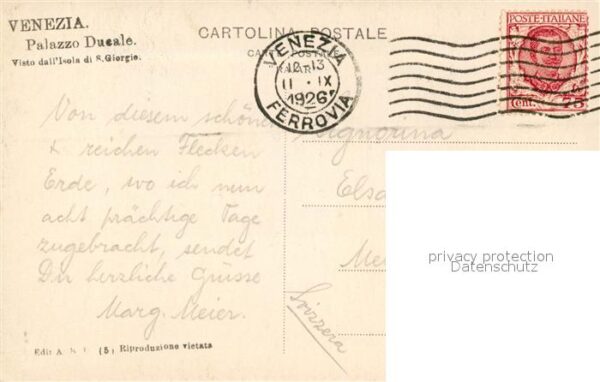 VENEZIA.
Palazzo Ducale.
Visto dall'Isola di S. Giorgio.
CARTOLINA POSTALE
CARTE POSTALE
VENEZIA
12-13
11 · IX
1926
FERROVIA
POSTE·ITALIANE
Cent. 75
Von diesem schönen
& reichen Flecken
Erde, wo ich nun
acht prächtige Tage
zugebracht, sendet
Dir herzliche Grüsse
Marg. Meier.
Signorina
Elsa
Svizzera
privacy protection
Datenschutz
Edit A. (5) Riproduzione vietata